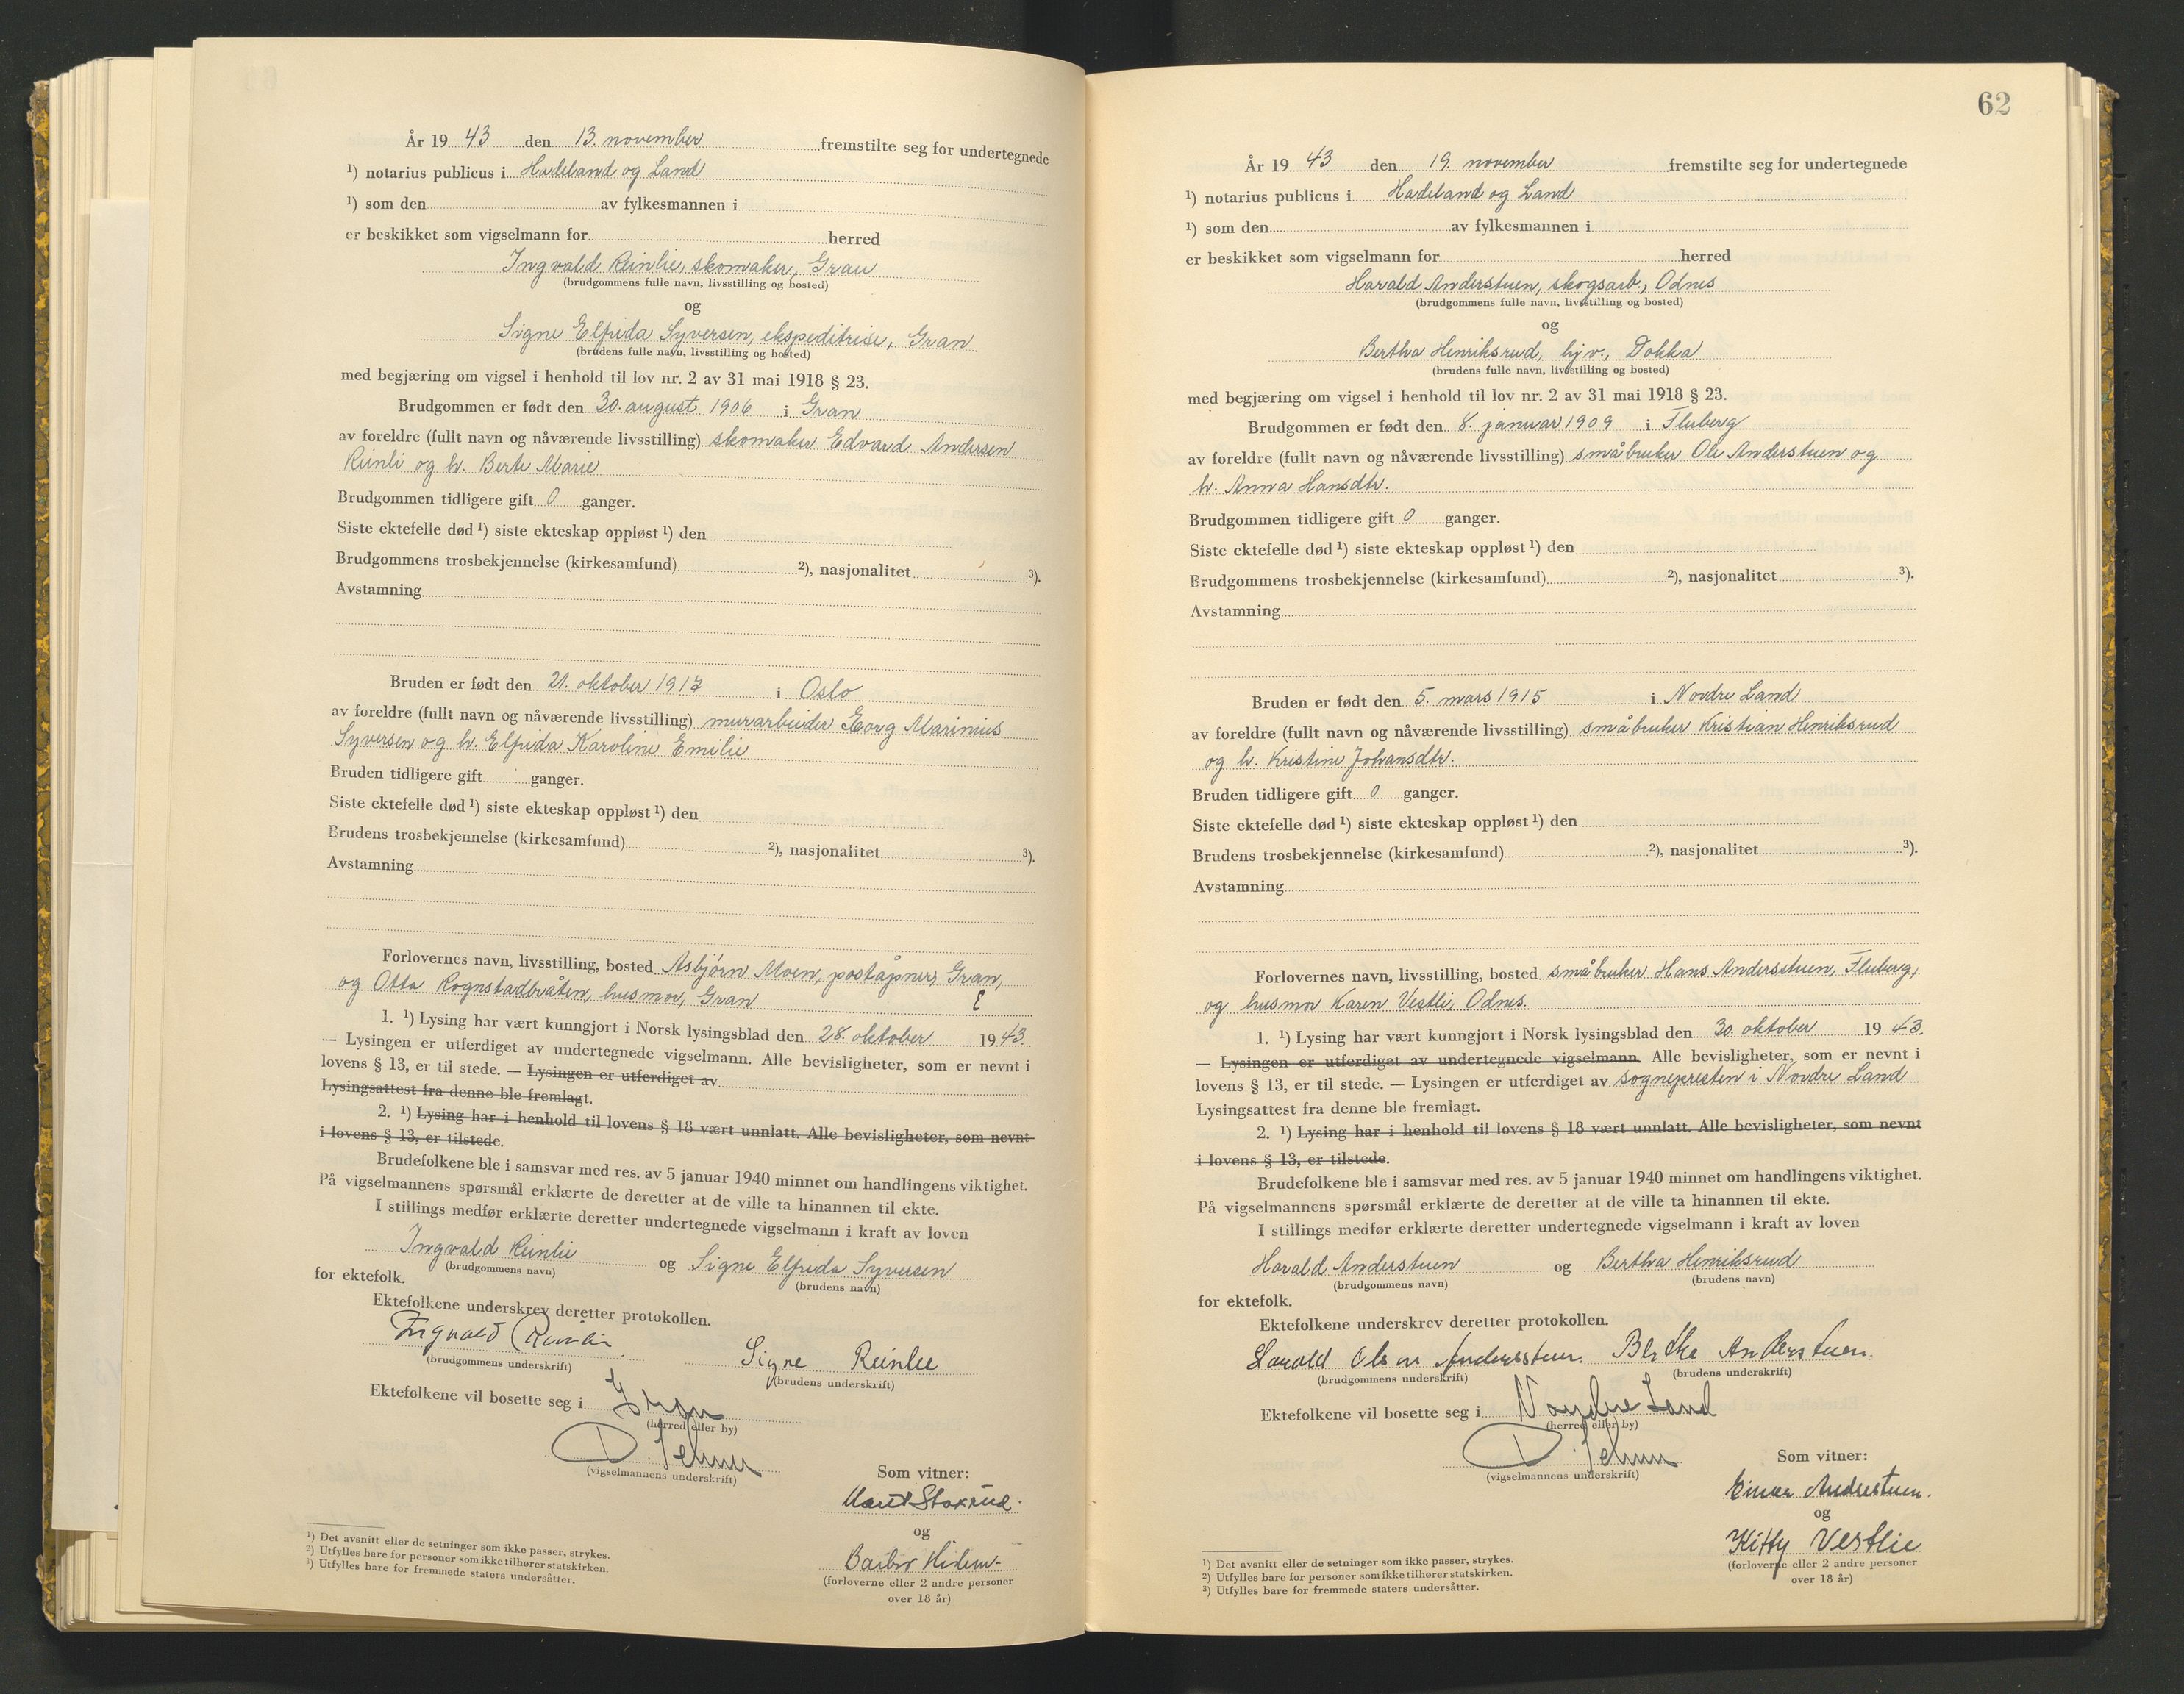 År 19 43 den 13. november fremstilte seg for undertegnede
¹) notarius publicus i Hadeland og Land
¹) som den av fylkesmannen i
er beskikket som vigselmann for herred
Ingvald Reinlie, skomaker, Gran
(brudgommens fulle navn, livsstilling og bosted)
og
Signe Elfrida Syversen, ekspeditrise, Gran
(brudens fulle navn, livsstilling og bosted)
med begjæring om vigsel i henhold til lov nr. 2 av 31 mai 1918 § 23.
Brudgommen er født den 30. august 1906 i Gran
av foreldre (fullt navn og nåværende livsstilling) skomaker Edvard Andersen
Reinli og h. Berte Marie
Brudgommen tidligere gift 0 ganger.
Siste ektefelle død ¹) siste ekteskap oppløst ¹) den
Brudgommens trosbekjennelse (kirkesamfund) ²), nasjonalitet ³).
Avstamning
Bruden er født den 21. oktober 1917 i Oslo
av foreldre (fullt navn og nåværende livsstilling) murarbeider Georg Marinius
Syversen og h. Elfrida Karoline Emilie
Bruden tidligere gift ganger.
Siste ektefelle død ¹) siste ekteskap oppløst ¹) den
Brudens trosbekjennelse (kirkesamfund) ²), nasjonalitet ³).
Avstamning
Forlovernes navn, livsstilling, bosted Asbjørn Moen, poståpner, Gran,
og Otta Rognstadbråten, husmor, Gran
1. ¹) Lysing har vært kunngjort i Norsk lysingsblad den 28. oktober 19 43.
— Lysingen er utferdiget av undertegnede vigselmann. Alle bevisligheter, som er nevnt i
lovens § 13, er til stede. — Lysingen er utferdiget av
Lysingsattest fra denne ble fremlagt.
2. ¹) Lysing har i henhold til lovens § 18 vært unnlatt. Alle bevisligheter, som nevnt
i lovens § 13, er tilstede.
Brudefolkene ble i samsvar med res. av 5 januar 1940 minnet om handlingens viktighet.
På vigselmannens spørsmål erklærte de deretter at de ville ta hinannen til ekte.
I stillings medfør erklærte deretter undertegnede vigselmann i kraft av loven
Ingvald Reinlie og Signe Elfrida Syversen
(brudgommens navn) (brudens navn)
for ektefolk.
Ektefolkene underskrev deretter protokollen.
Ingvald Reinlie Signe Reinlie
(brudgommens underskrift) (brudens underskrift)
Ektefolkene vil bosette seg i Gran
(herred eller by)
D.
(vigselmannens underskrift)
Som vitner:
Stoxrud.
og
(forloverne eller 2 andre personer
over 18 år)
¹) Det avsnitt eller de setninger som ikke passer, strykes.
²) Utfylles bare for personer som ikke tilhører statskirken.
³) Utfylles bare for fremmede staters undersåtter.
62
År 19 43 den 19. november fremstilte seg for undertegnede
¹) notarius publicus i Hadeland og Land
¹) som den av fylkesmannen i
er beskikket som vigselmann for herred
Harald Anderstuen, skogsarb., Odnes
(brudgommens fulle navn, livsstilling og bosted)
og
Bertha Henriksrud, hjv., Dokka
(brudens fulle navn, livsstilling og bosted)
med begjæring om vigsel i henhold til lov nr. 2 av 31 mai 1918 § 23.
Brudgommen er født den 8. januar 1909 i Fluberg
av foreldre (fullt navn og nåværende livsstilling) småbruker Ole Anderstuen og
h. Anna Hansdtr.
Brudgommen tidligere gift 0 ganger.
Siste ektefelle død ¹) siste ekteskap oppløst ¹) den
Brudgommens trosbekjennelse (kirkesamfund) ²), nasjonalitet ³).
Avstamning
Bruden er født den 5. mars 1915 i Nordre Land
av foreldre (fullt navn og nåværende livsstilling) småbruker Kristian Henriksrud
og h. Kristine Johansdtr.
Bruden tidligere gift 0 ganger.
Siste ektefelle død ¹) siste ekteskap oppløst ¹) den
Brudens trosbekjennelse (kirkesamfund) ²), nasjonalitet ³).
Avstamning
Forlovernes navn, livsstilling, bosted småbruker Hans Anderstuen, Fluberg,
og husmor Karen Vestli, Odnes.
1. ¹) Lysing har vært kunngjort i Norsk lysingsblad den 30. oktober 19 43.
— Lysingen er utferdiget av undertegnede vigselmann. Alle bevisligheter, som er nevnt i
lovens § 13, er til stede. — Lysingen er utferdiget av sognepresten i Nordre Land
Lysingsattest fra denne ble fremlagt.
2. ¹) Lysing har i henhold til lovens § 18 vært unnlatt. Alle bevisligheter, som nevnt
i lovens § 13, er tilstede.
Brudefolkene ble i samsvar med res. av 5 januar 1940 minnet om handlingens viktighet.
På vigselmannens spørsmål erklærte de deretter at de ville ta hinannen til ekte.
I stillings medfør erklærte deretter undertegnede vigselmann i kraft av loven
Harald Anderstuen og Bertha Henriksrud
(brudgommens navn) (brudens navn)
for ektefolk.
Ektefolkene underskrev deretter protokollen.
Harald Olsen Andersstuen. Berthe Anderstuen.
(brudgommens underskrift) (brudens underskrift)
Ektefolkene vil bosette seg i Nordre Land
(herred eller by)
D.
(vigselmannens underskrift)
Som vitner:
Einar Anderstuen.
og
Kitty Vestlie
(forloverne eller 2 andre personer
over 18 år)
¹) Det avsnitt eller de setninger som ikke passer, strykes.
²) Utfylles bare for personer som ikke tilhører statskirken.
³) Utfylles bare for fremmede staters undersåtter.